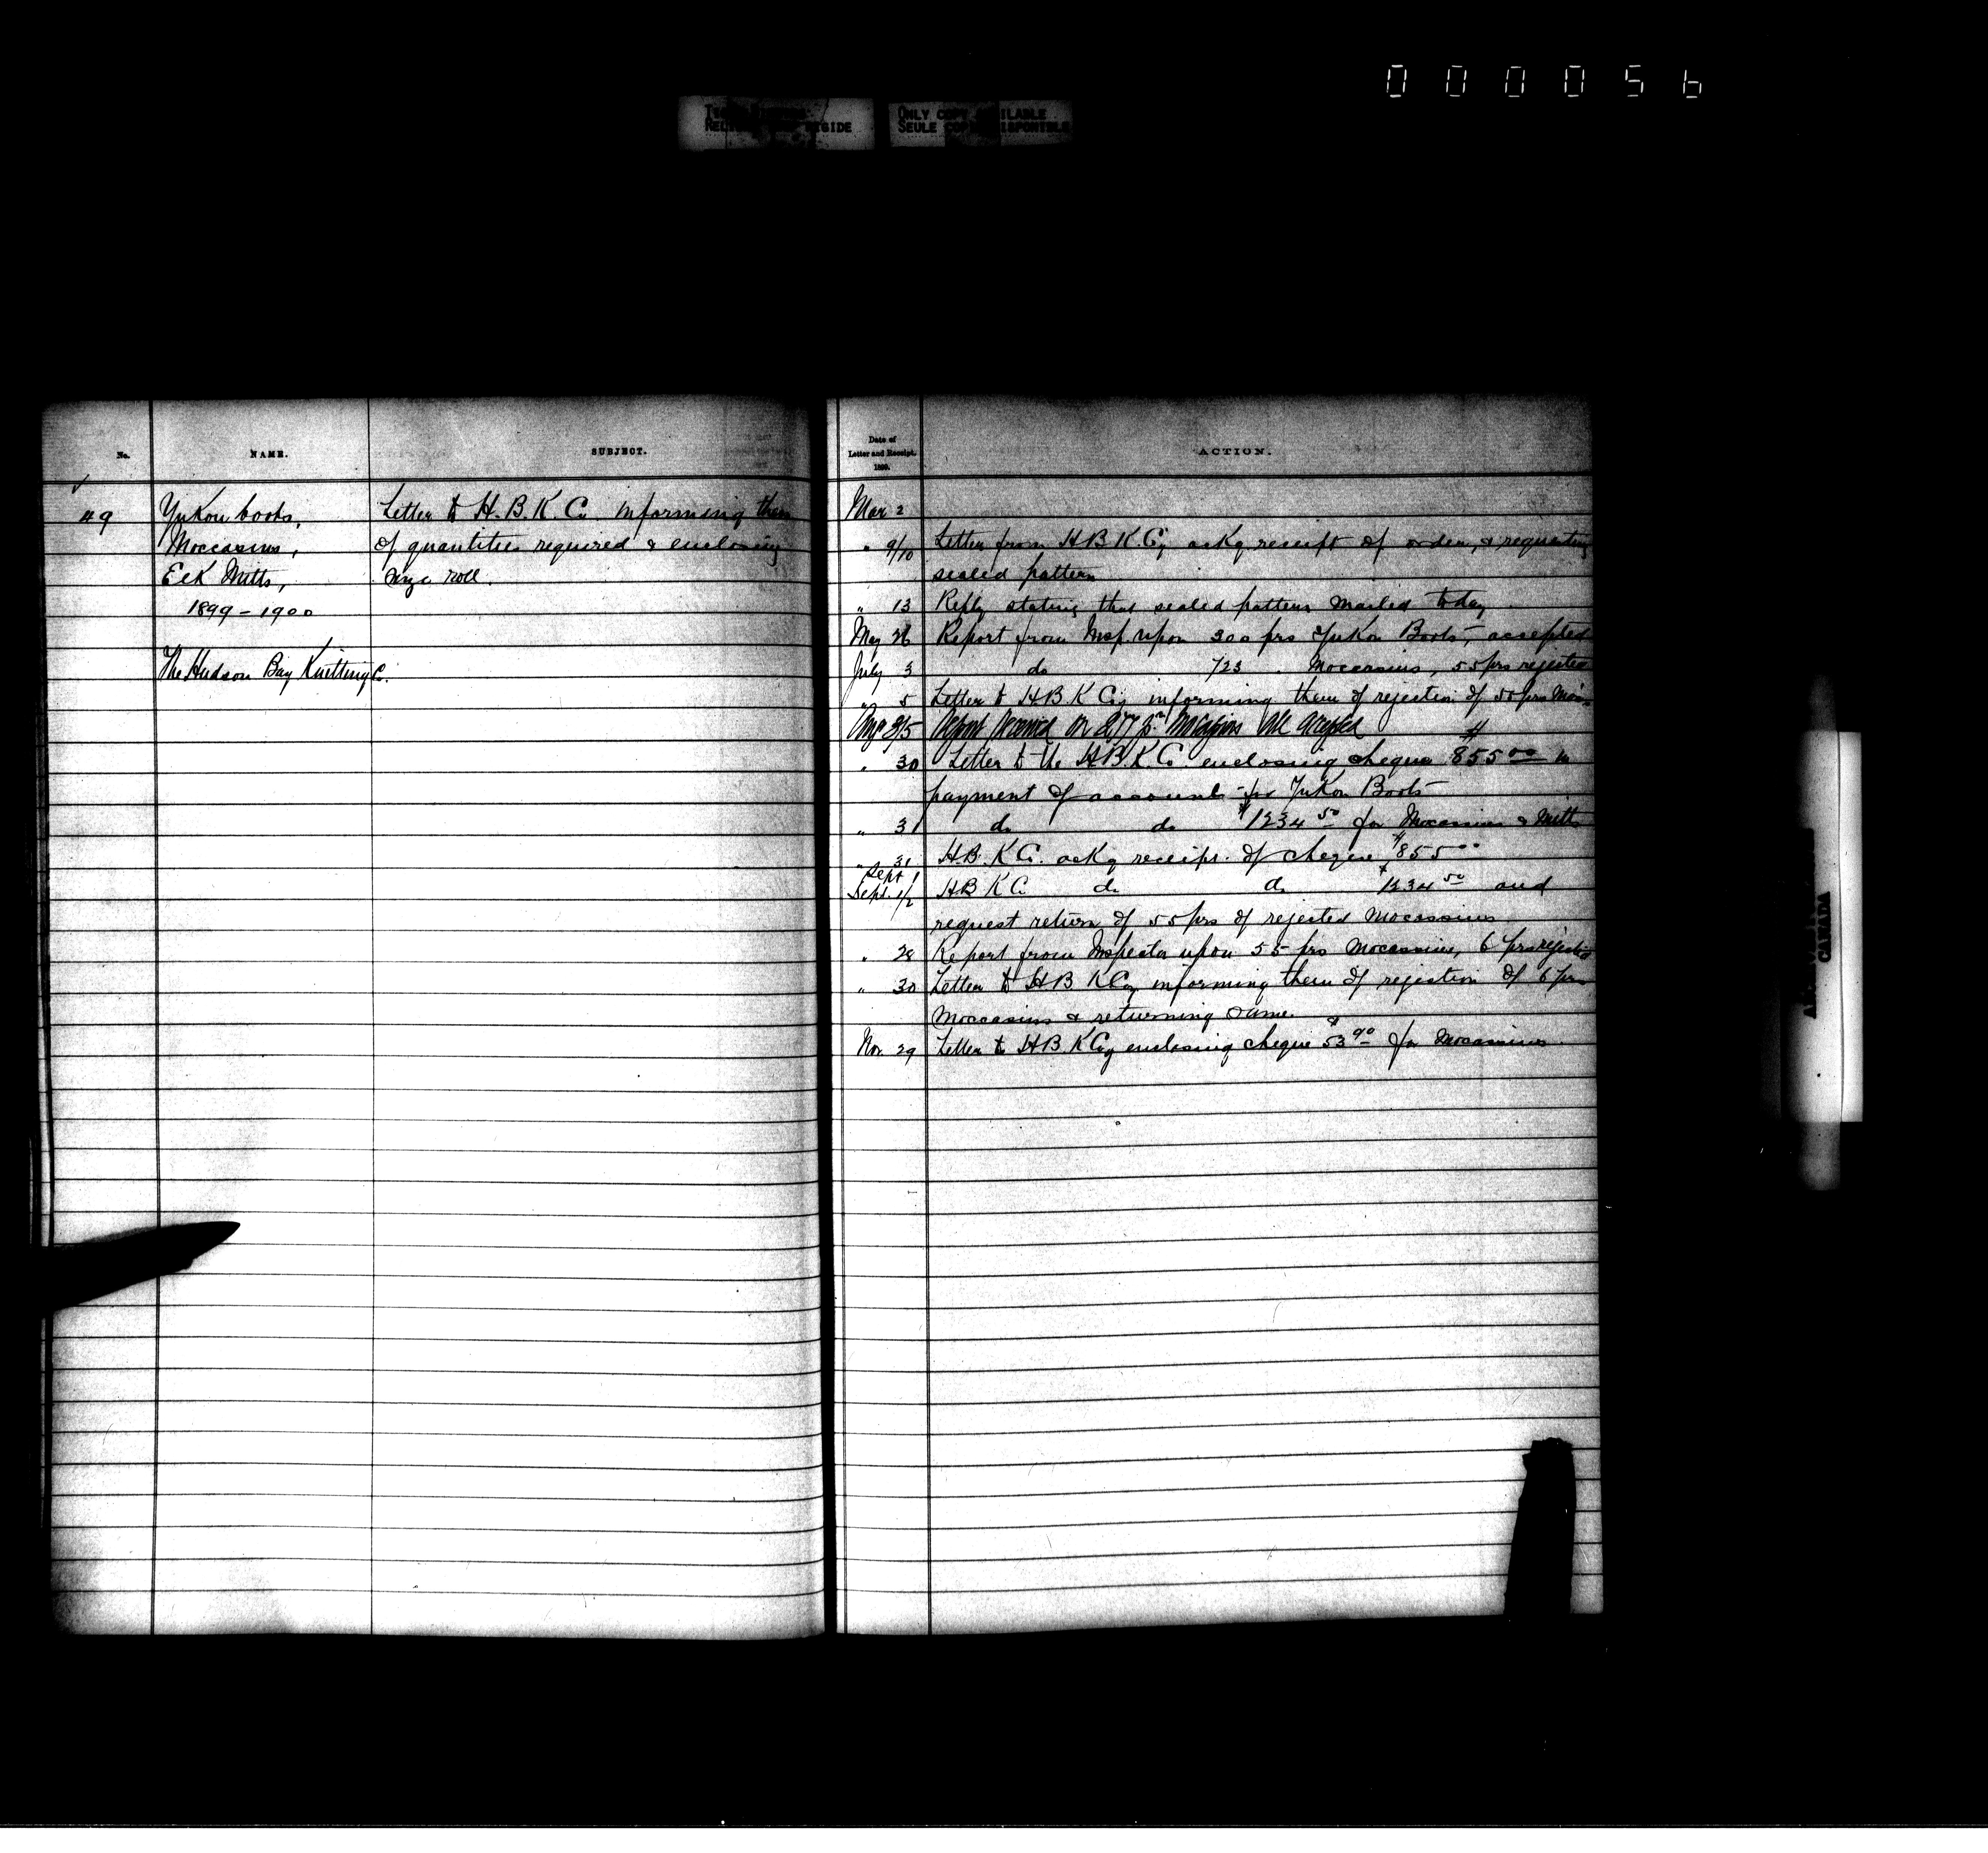 000056
ONLY COPY AVAILABLE
SEULE COPIE DISPONIBLE
No.
NAME.
SUBJECT.
49
Yukon boots,
Letter to H.B.K.Co. informing them
Moccasins,
of quantities required & enclosing
Elk Mitts,
size roll.
1899-1900
The Hudson Bay Knitting Co.
Date of
Letter and Receipt.
1899.
ACTION.
Mar 2
" 9/10 Letter from H B K Coy ackg receipt of order, & requesting
sealed pattern
" 13 Reply stating that sealed pattern mailed today
May 26 Report from Insp. upon 300 prs Yukon Boots, accepted
July 3 do 723 Moccasins, 55 prs rejected
" 5 Letter to H B K Coy informing them of rejection of 55 prs Moc.
Aug Report received on prs Mocassins all accepted
" 30 Letter to the H.B.K.Co enclosing cheque $855.00 in
payment of accounts for Yukon Boots
" 31 do do $1234.50 for Moccasins & Mitts
" 31 H.B.K Co. ackg receipt of cheque $855.00
Sept 1
Sept. 1/2 H B K C. do do $1234.50 and
request return of 55 prs of rejected Mocassins
" 28 Report from Inspector upon 55 prs Mocassins, 6 prs rejected
" 30 Letter to H B K Coy informing them of rejection of 6 prs
Moccasins & returning same.
Nov. 29 Letter to H.B.K Coy enclosing cheque $53.90 for Mocassins.
CANADA